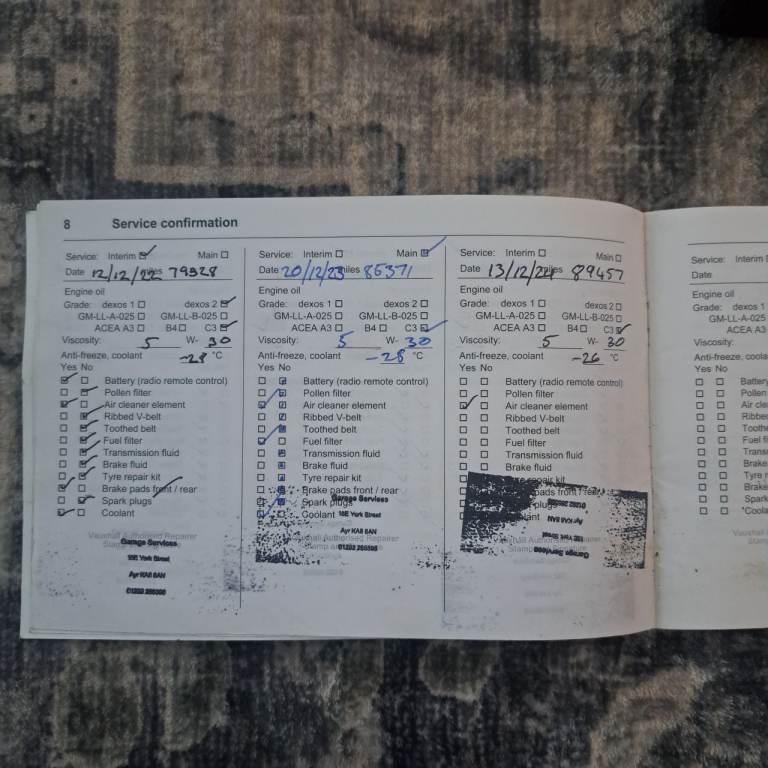 8 Service confirmation
Service: Interim Main
Date 12/12/22 miles 79328
Engine oil
Grade: dexos 1 dexos 2
GM-LL-A-025 GM-LL-B-025
ACEA A3 B4 C3
Viscosity: 5 W- 30
Anti-freeze, coolant -28 °C
Yes No
Battery (radio remote control)
Pollen filter
Air cleaner element
Ribbed V-belt
Toothed belt
Fuel filter
Transmission fluid
Brake fluid
Tyre repair kit
Brake pads front / rear
Spark plugs
Coolant
Vauxhall Authorised Repairer
Garage Services
18E York Street
Ayr KA8 8AN
Service: Interim Main
Date 20/12/23 miles 85371
Engine oil
Grade: dexos 1 dexos 2
GM-LL-A-025 GM-LL-B-025
ACEA A3 B4 C3
Viscosity: 5 W- 30
Anti-freeze, coolant -28 °C
Yes No
Battery (radio remote control)
Pollen filter
Air cleaner element
Ribbed V-belt
Toothed belt
Fuel filter
Transmission fluid
Brake fluid
Tyre repair kit
Brake pads front / rear
Spark plugs
Coolant
Garage Services
18E York Street
Ayr KA8 8AN
Authorised Repairer
Service: Interim Main
Date 13/12/24 miles 89457
Engine oil
Grade: dexos 1 dexos 2
GM-LL-A-025 GM-LL-B-025
ACEA A3 B4 C3
Viscosity: 5 W- 30
Anti-freeze, coolant -26 °C
Yes No
Battery (radio remote control)
Pollen filter
Air cleaner element
Ribbed V-belt
Toothed belt
Fuel filter
Transmission fluid
Brake fluid
repair kit
pads front / rear
plugs
Ayr KA8 8AN
Garage Services
Service: Interim
Date
Engine oil
Grade: dexos 1
GM-LL-A-025
ACEA A3
Viscosity:
Anti-freeze, coola
Yes No
Battery
Pollen
Air cle
Ribbed
Toothe
Fuel fi
Trans
Brake
Tyre r
Brake
Spark
*Coola